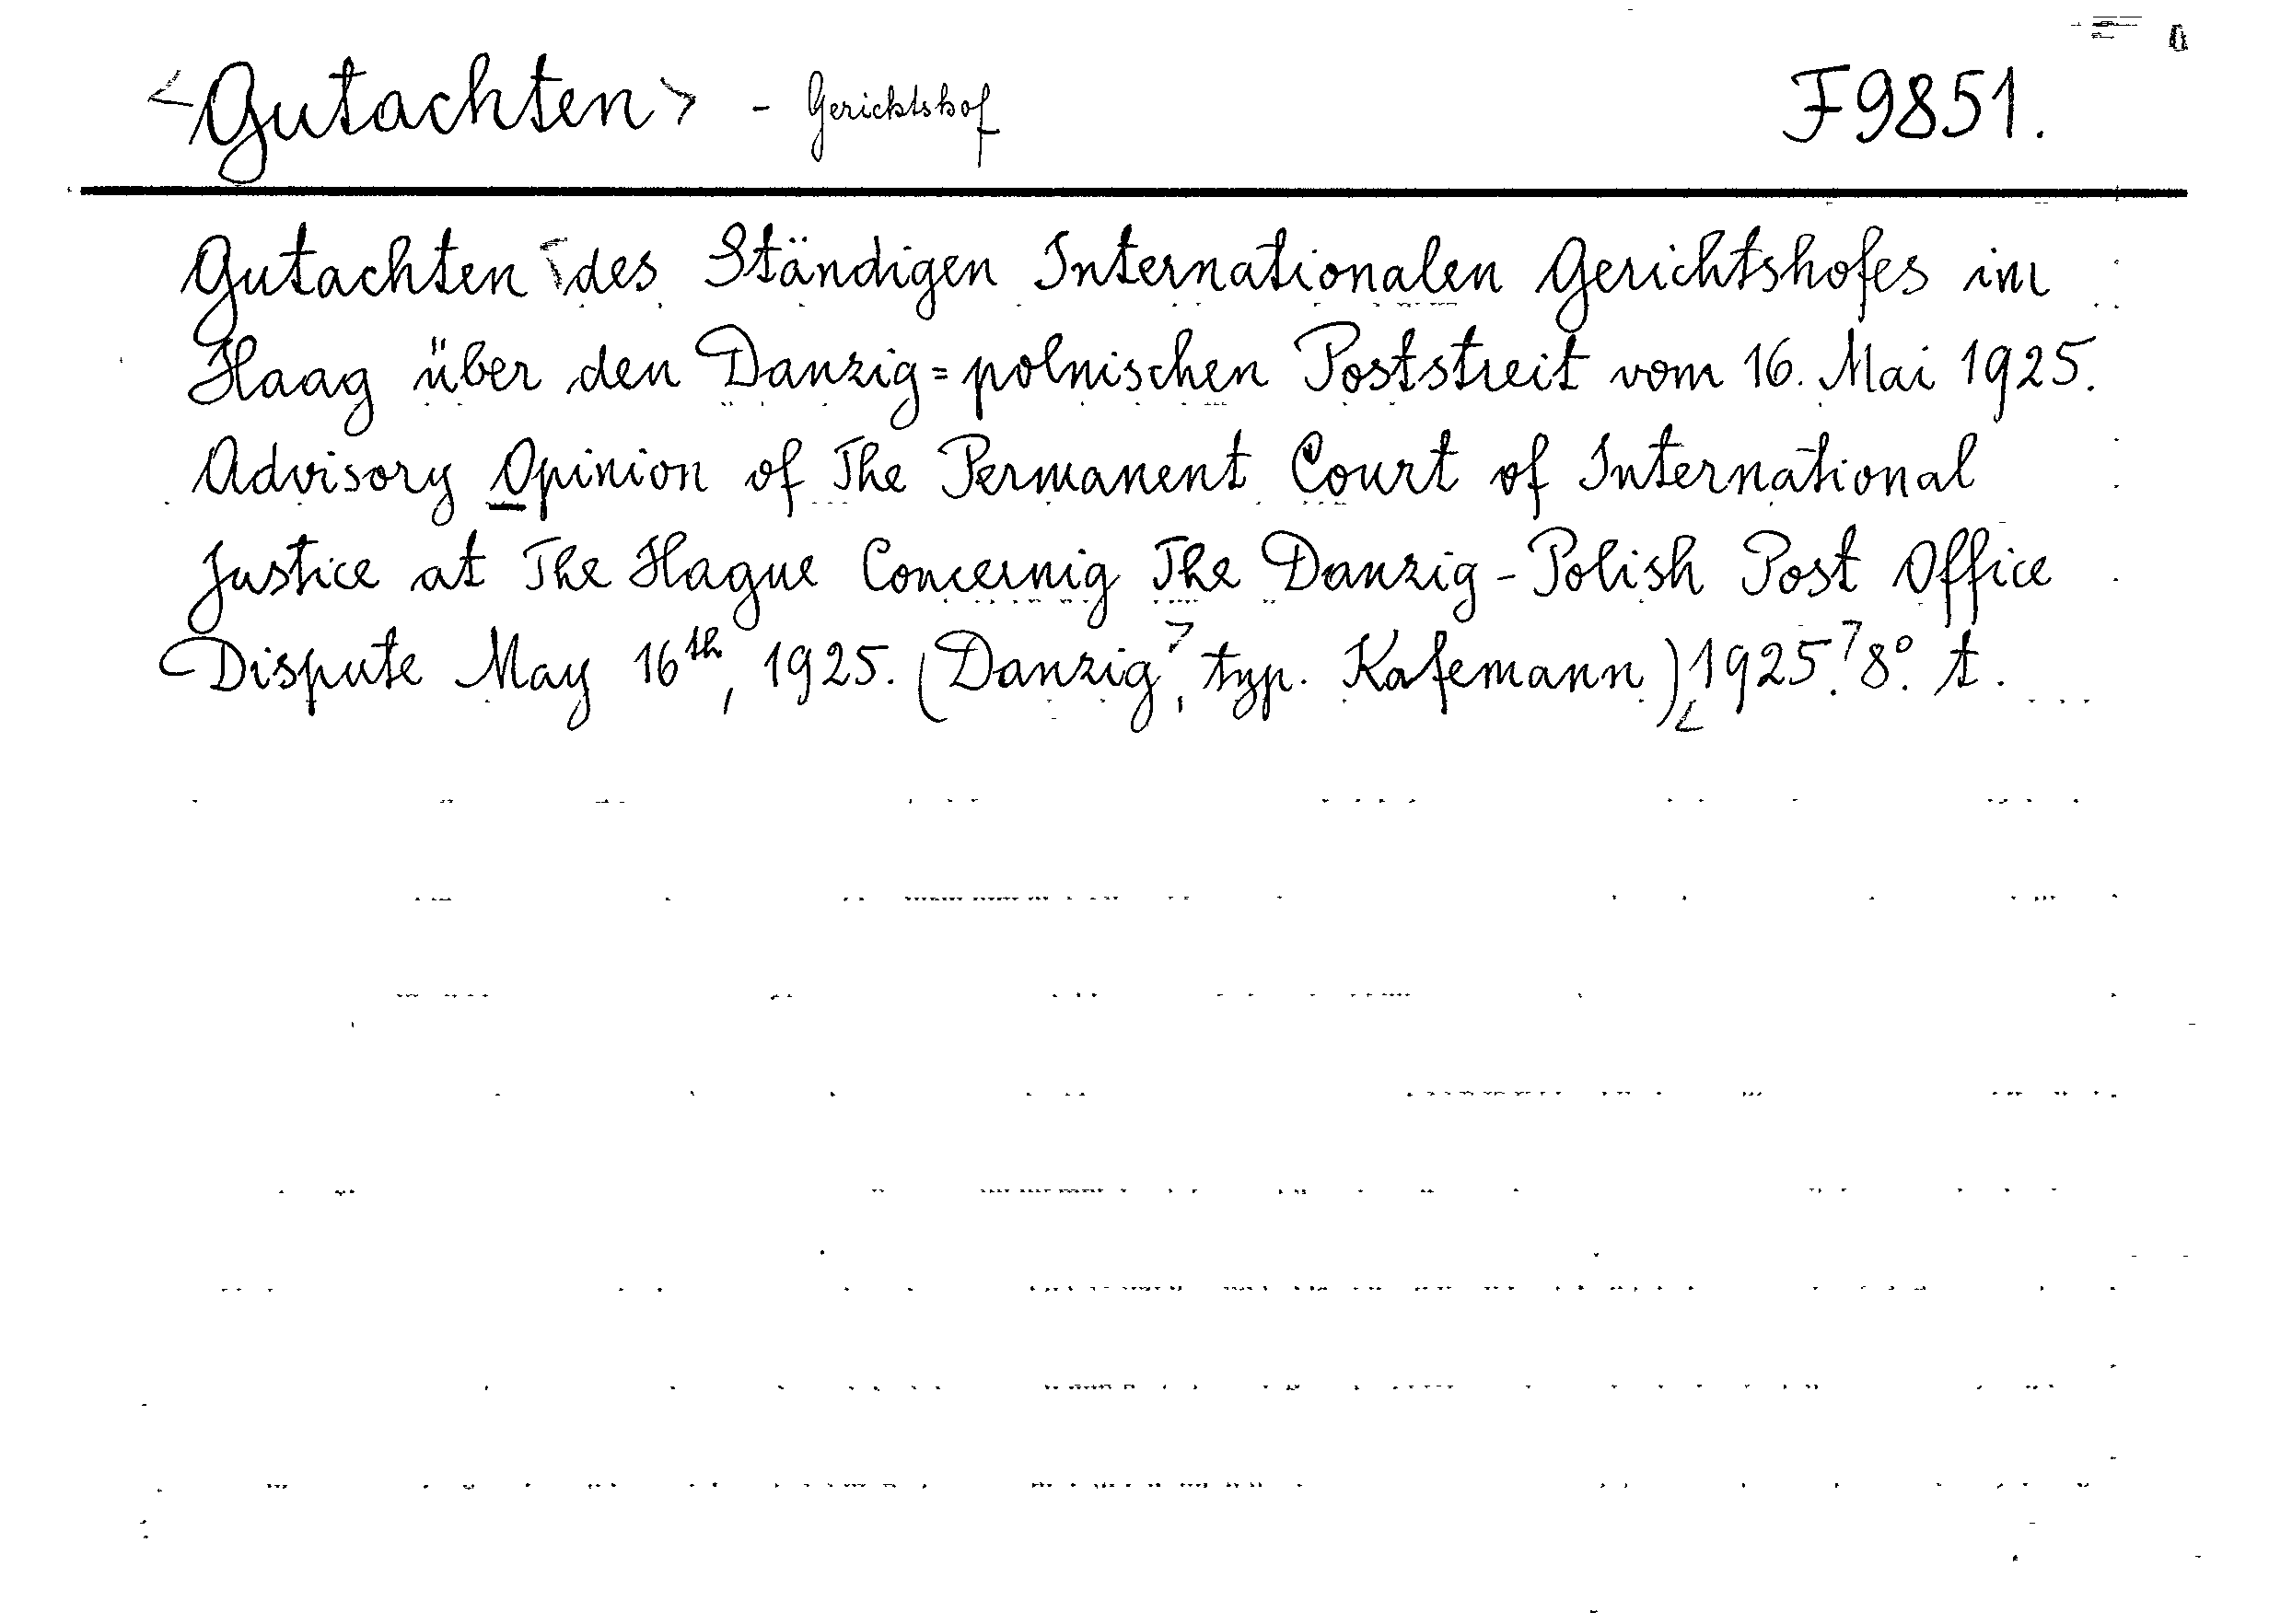 <Gutachten> - Gerichtshof F9851.
Gutachten <des Ständigen Internationalen Gerichtshofes im
Haag über den Danzig=polnischen Poststreit vom 16. Mai 1925.
Advisory Opinion of The Permanent Court of International
Justice at The Hague Concernig The Danzig-Polish Post Office
Dispute May 16th, 1925. (Danzig>, typ. Kafemann) <1925.> 8°. t.